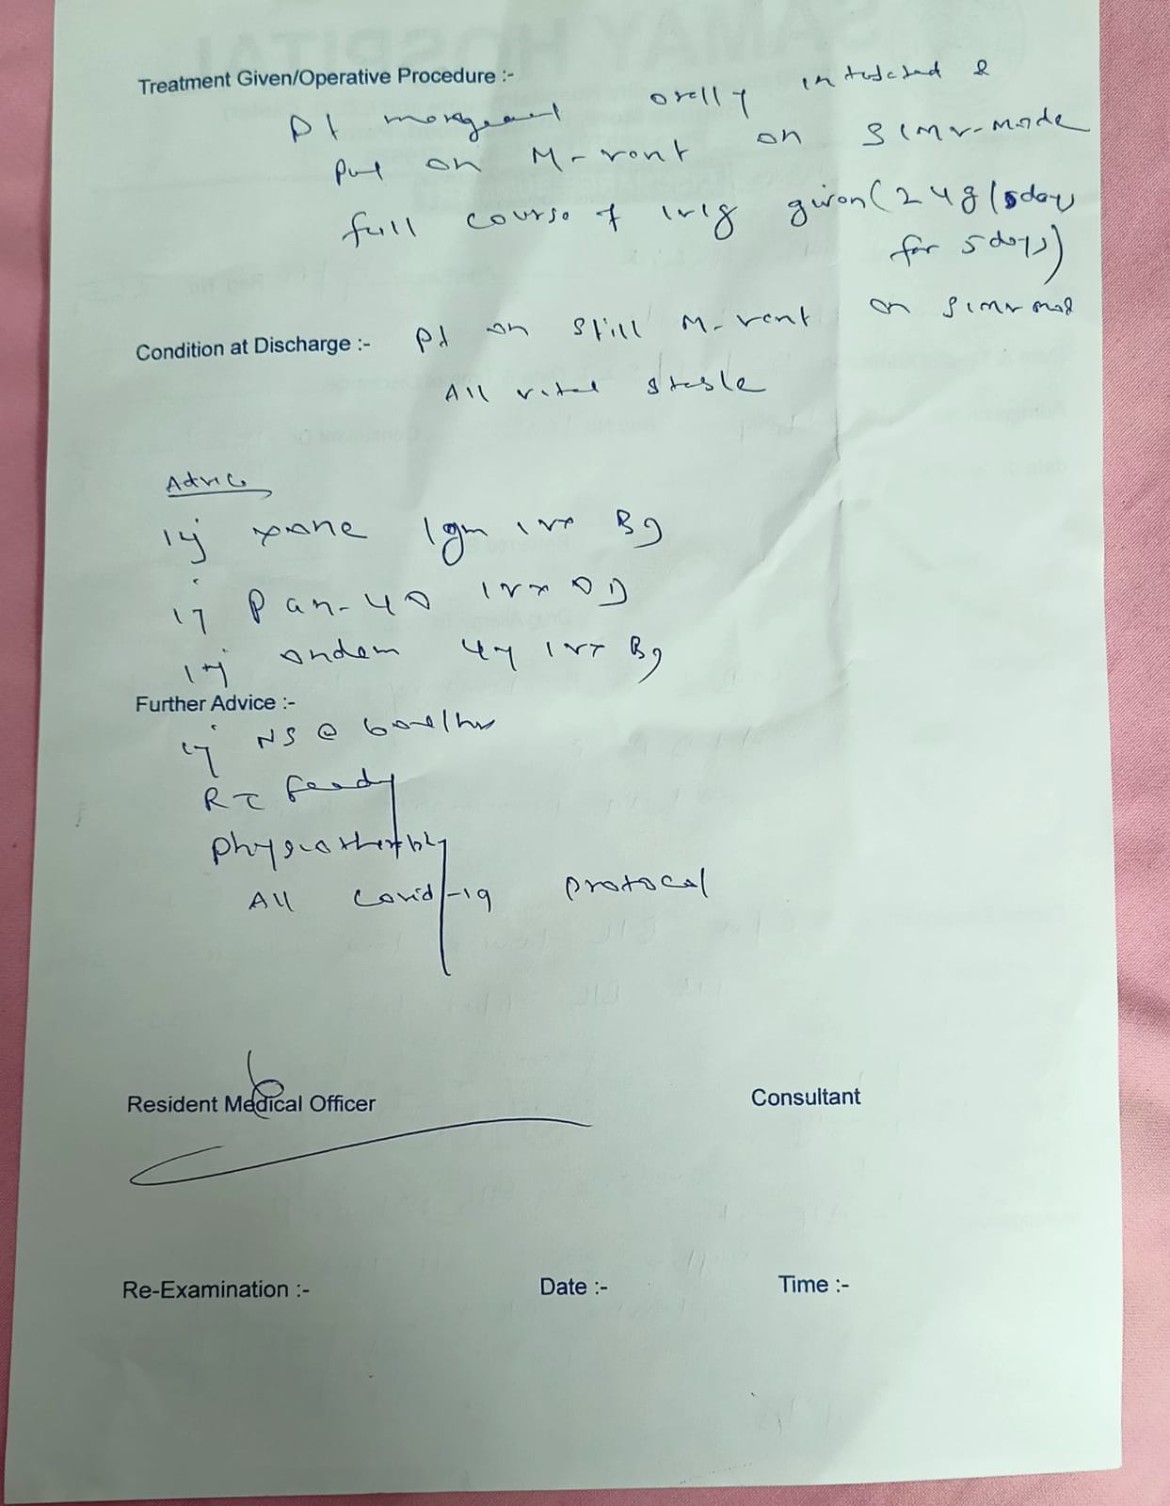 Treatment Given/Operative Procedure :-
Pt orally intubated &
Put on M-vent on SIMV-mode
full course of IVIg given (24g/5day
for 5 days)
Condition at Discharge :- Pt on still M-vent on SIMV mod
All vital stable
Advice
Inj xone 1gm IV BD
Inj Pan-40 IV OD
Inj ondem IV BD
Further Advice :-
NS @ 60ml/hr
RT feed
Physiotherapy
All Covid-19 protocol
Resident Medical Officer
Consultant
Re-Examination :- Date :- Time :-